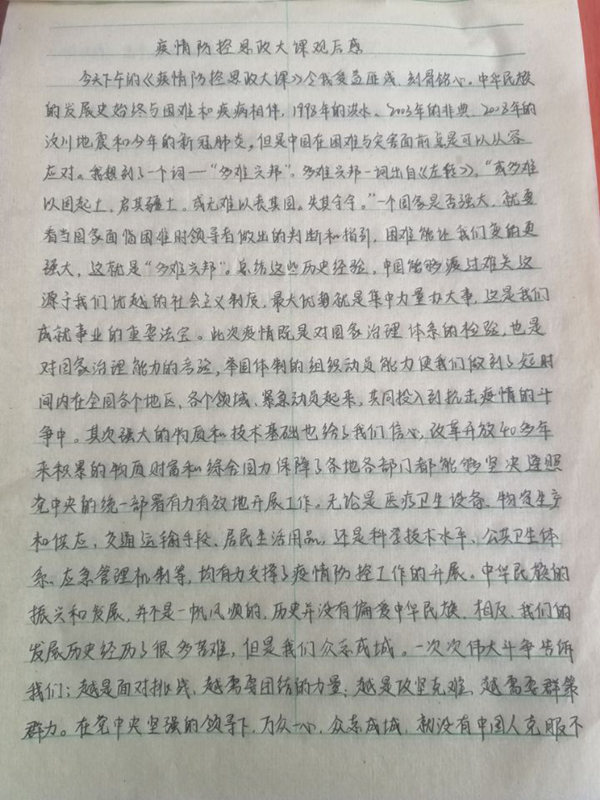 疫情防控思政大课观后感
今天下午的《疫情防控思政大课》令我受益匪浅、刻骨铭心。中华民族
的发展史始终与困难和疾病相伴，1998年的洪水、2003年的非典、2008年的
汶川地震和今年的新冠肺炎，但是中国在困难与灾害面前总是可以从容
应对。我想到了一个词—“多难兴邦”。多难兴邦一词出自《左转》，“或多难
以固起土，启其疆土，或无难以丧其国。失其守今。”一个国家是否强大，就要
看当国家面临困难时领导者做出的判断和指引，困难能让我们变的更
强大，这就是“多难兴邦”。总结这些历史经验，中国能够渡过难关这
源于我们优越的社会主义制度，最大优势就是集中力量办大事，这是我们
成就事业的重要法宝。此次疫情既是对国家治理体系的检验，也是
对国家治理能力的考验，举国体制的组织动员能力使我们做到了短时
间内在全国各个地区、各个领域、紧急动员起来，共同投入到抗击疫情的斗
争中。其次强大的物质和技术基础也给了我们信心，改革开放40多年
来积累的物质财富和综合国力保障了各地各部门都能够坚决遵照
党中央的统一部署有力有效地开展工作。无论是医疗卫生设备、物资生产
和供应、交通运输手段、居民生活用品，还是科学技术水平、公共卫生体
系、应急管理机制等，均有力支撑了疫情防控工作的开展。中华民族的
振兴和发展，并不是一帆风顺的，历史并没有偏爱中华民族，相反，我们的
发展历史经历了很多苦难，但是我们众志成城。一次次伟大斗争告诉
我们；越是面对挑战，越需要团结的力量；越是攻坚克难、越需要群策
群力。在党中央坚强的领导下，万众一心，众志成城，就没有中国人克服不